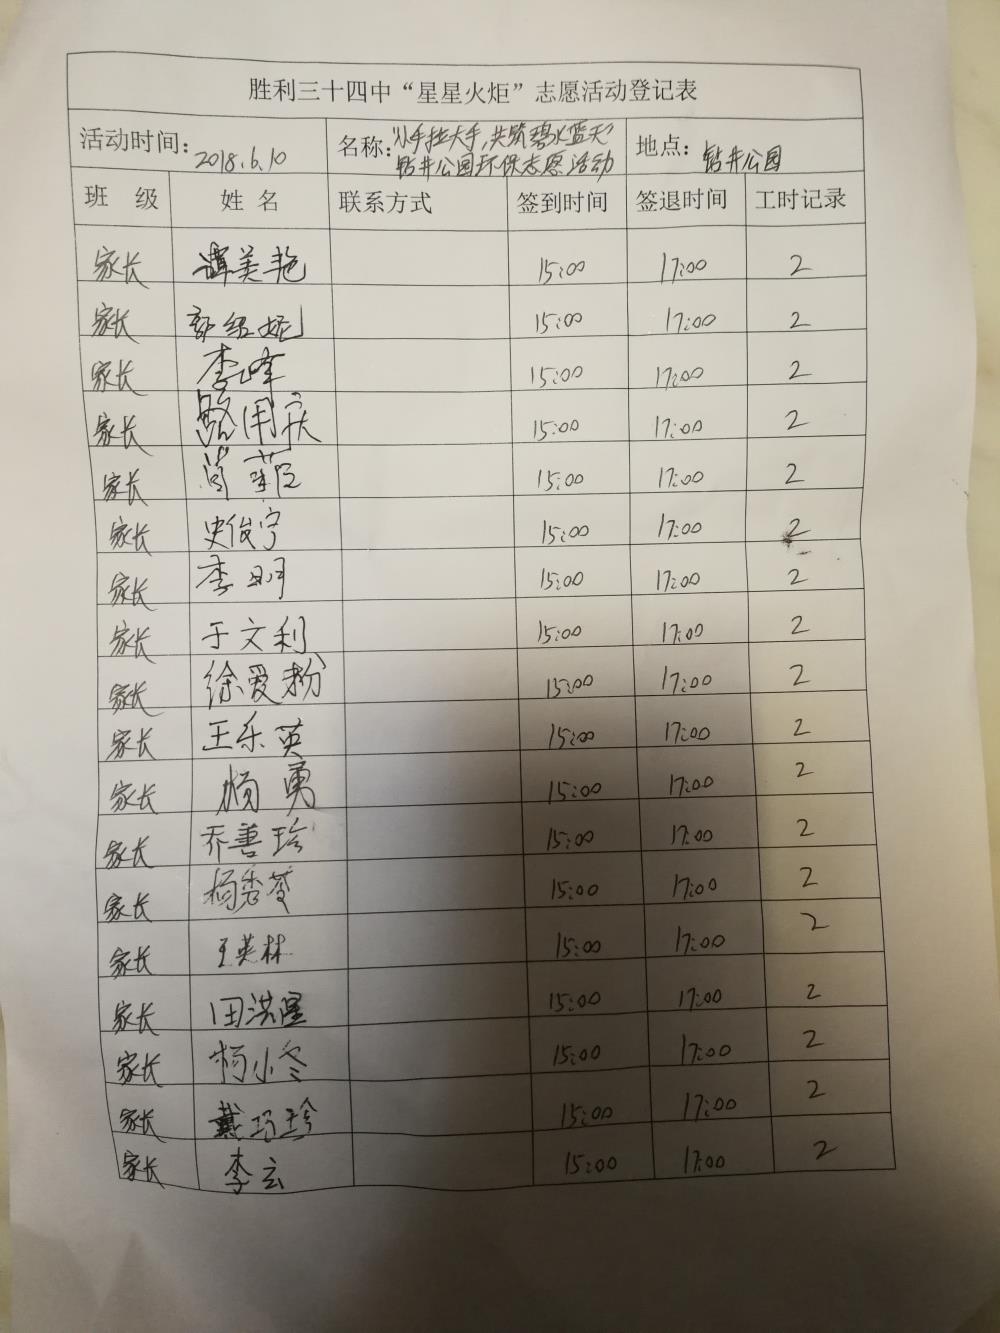 胜利三十四中“星星火炬”志愿活动登记表
活动时间：2018.6.10 名称：“小手拉大手，共筑碧水蓝天” 地点：钻井公园
钻井公园环保志愿活动
班 级 姓 名 联系方式 签到时间 签退时间 工时记录
家长 谭美艳 15:00 17:00 2
家长 郭绍妮 15:00 17:00 2
家长 李峰 15:00 17:00 2
家长 15:00 17:00 2
家长 15:00 17:00 2
家长 史俊宁 15:00 17:00 2
家长 李明 15:00 17:00 2
家长 于文利 15:00 17:00 2
家长 徐爱粉 15:00 17:00 2
家长 王乐英 15:00 17:00 2
家长 杨勇 15:00 17:00 2
家长 乔善珍 15:00 17:00 2
家长 杨秀 15:00 17:00 2
家长 王英林 15:00 17:00 2
家长 田洪星 15:00 17:00 2
家长 杨小冬 15:00 17:00 2
家长 戴巧珍 15:00 17:00 2
家长 李云 15:00 17:00 2